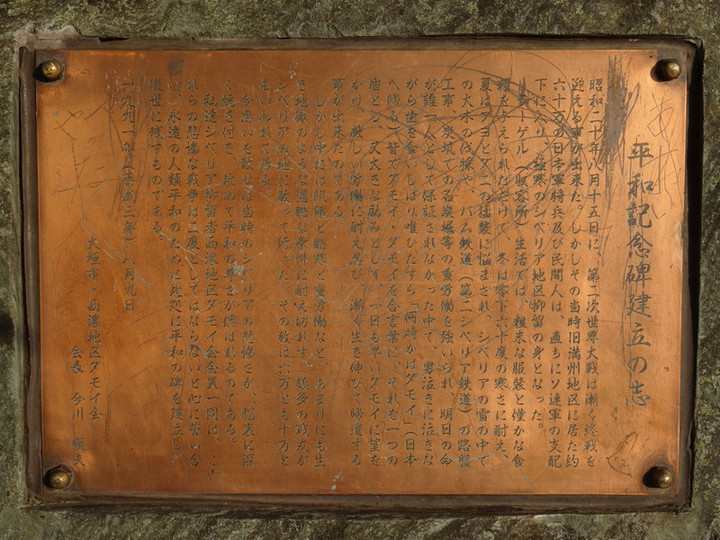 平和記念碑建立の志
昭和二十年八月十五日に、第二次世界大戦は漸く終戦を
迎える事が出来た。しかしその当時旧満州地区に居た約
六十万の日本軍将兵及び民間人は、直ちにソ連軍の支配
下に入り、極寒のシベリア地区抑留の身となった。
ラーゲル(収容所)生活では、粗末な服装と僅かな食
糧を与えられただけで、冬は零下六十度の寒さに耐え、
夏はアヨとダニの猛襲に悩まされ、シベリアの雪の中で
の大木の伐採や、バム鉄道(第二シベリア鉄道)の路盤
工事、炭坑での石炭堀等の重労働を強いられ、明日の命
が誰一人として保証されなかった中で、男泣きに泣きな
がら歯を食いしばり唯ひたすら「何時かはダモイ」(日本
へ帰る)皆でダモイ、ダモイを合言葉に、それを一つの
糧とし、又大きな励みとして、一日も早いダモイに望を
かけ、厳しい労働に耐え忍び、漸く生き伸びて帰還する
事が出来たのである。
しかし中には飢餓と酷寒と重労働など、あまりにも生
き地獄のような過酷な条件に耐え切れず、幾多の戦友が
シベリアの地に散って行った。その数は六万とも十万と
もいわれて居る。
今思いを致せば当時のシベリアの悲惨さが、脳裏に深
く焼き付き、改めて平和の尊さが偲ばれるのである。
私達シベリア抑留者西濃地区ダモイ会会員一同は、こ
れらの悲惨な戦争は二度としてはならないと心に誓い合
い、永遠の人類平和のために此処に平和の碑を建立し、
後世に残すものである。
一九九一年(平成三年)八月九日
大垣市・西濃地区ダモイ会
会長 今川 順夫